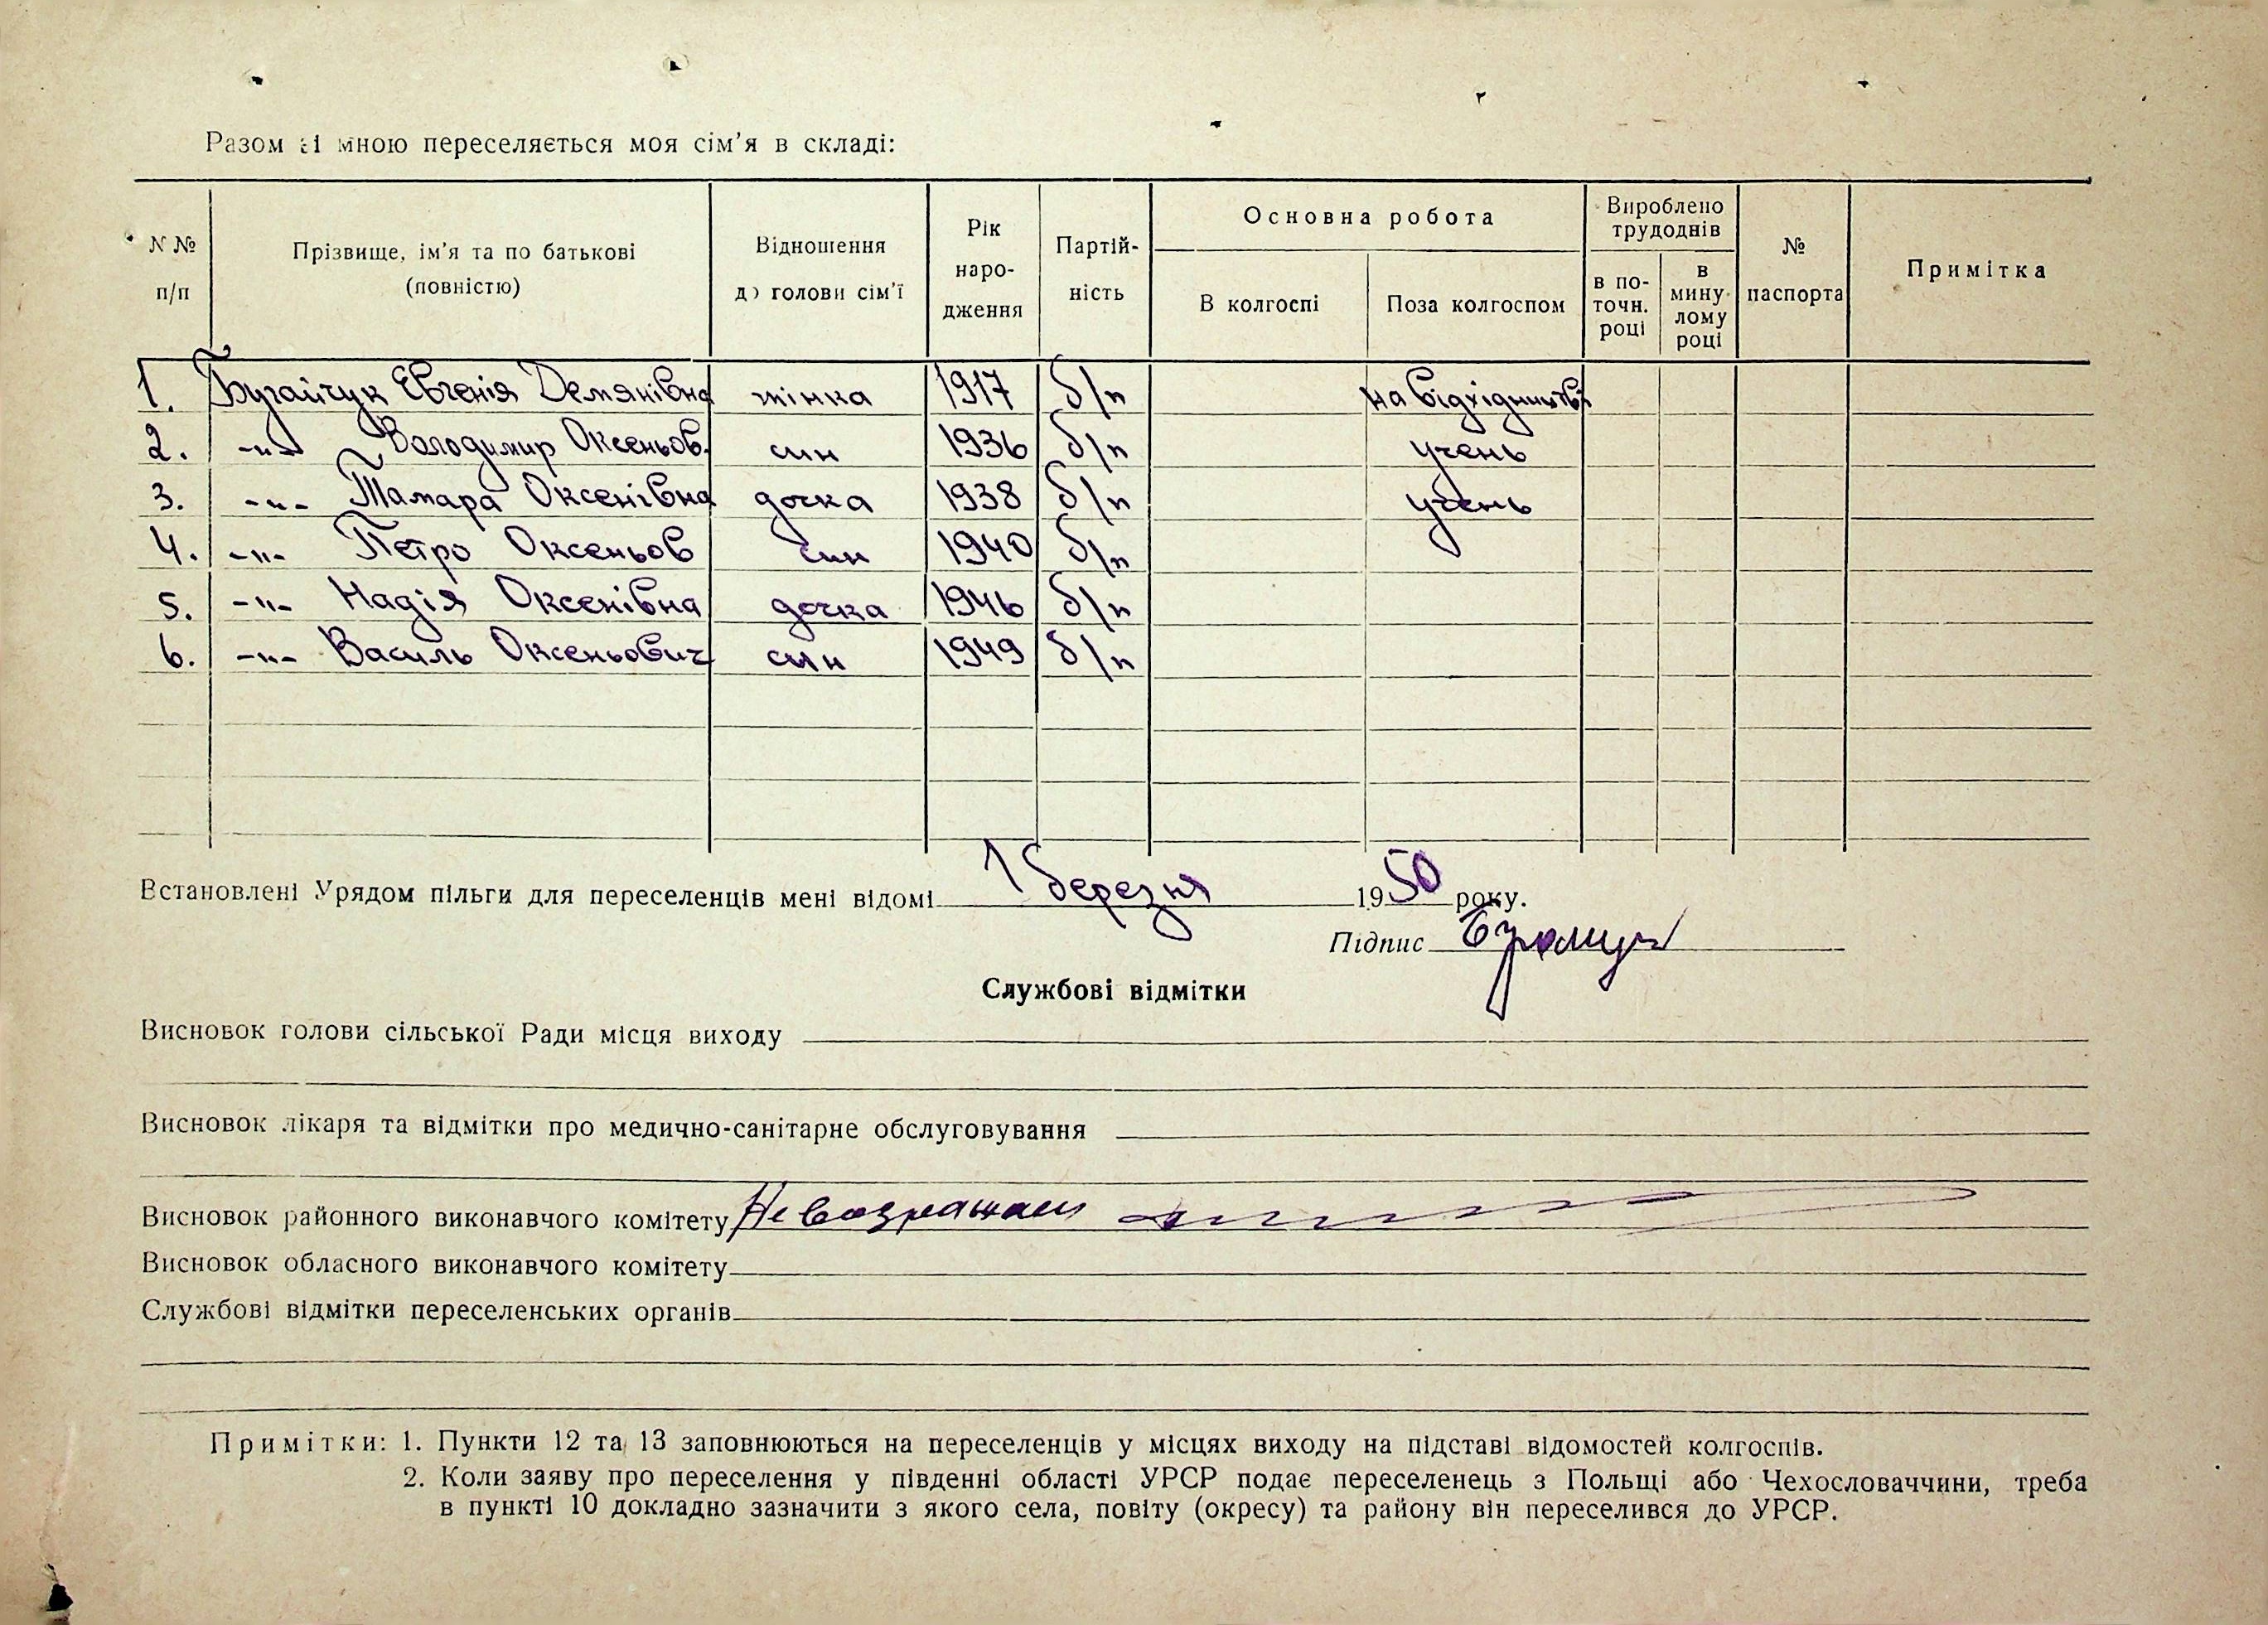 Разом зі мною переселяється моя сім'я в складі:
N №
п/п
Прізвище, ім'я та по батькові
(повністю)
Відношення
до голови сім'ї
Рік
наро-
дження
Партій-
ність
Основна робота
В колгоспі
Поза колгоспом
Вироблено
трудоднів
в по-
точн.
році
в
мину-
лому
році
№
паспорта
Примітка
1. Бугайчук Евгенія Демянівна жінка 1917 б/п на відхідництві
2. -"- Володимир Оксеньов. син 1936 б/п учень
3. -"- Тамара Оксенівна дочка 1938 б/п учень
4. -"- Петро Оксеньов син 1940 б/п
5. -"- Надія Оксенівна дочка 1946 б/п
6. -"- Василь Оксеньович син 1949 б/п
Встановлені Урядом пільги для переселенців мені відомі 1 березня 1950 року.
Підпис
Службові відмітки
Висновок голови сільської Ради місця виходу
Висновок лікаря та відмітки про медично-санітарне обслуговування
Висновок районного виконавчого комітету Не возражаем
Висновок обласного виконавчого комітету
Службові відмітки переселенських органів
Примітки: 1. Пункти 12 та 13 заповнюються на переселенців у місцях виходу на підставі відомостей колгоспів.
2. Коли заяву про переселення у південні області УРСР подає переселенець з Польщі або Чехословаччини, треба
в пункті 10 докладно зазначити з якого села, повіту (окресу) та району він переселився до УРСР.